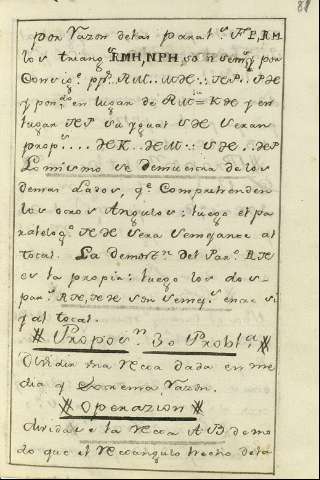 81
por razon de las paral.s FP, RM
los triang.s RMH, NPH, son semej.s por
Consig.e pp.s RM.. MH:: NP.. PH
y pon.do en lugar de RM = KH y en
lugar NP su ygual SH seran
prop.s ... HK.. HM:: SH.. HP
Lo mismo se demuestra de los
demas lados, q.e Comprenden
los otros Angulos: luego el pa
ralelog.o KH sera semejante al
total. La demost.n del Par.o
es la propia: luego los dos
par.s son semej.s entre si
y al total.
Propos.n 30 Probl.a
Dividir una recta dada en me
dia y Extrema Razon.
Operazion
dividase la recta AB, de mo
do que el rectangulo hecho de la